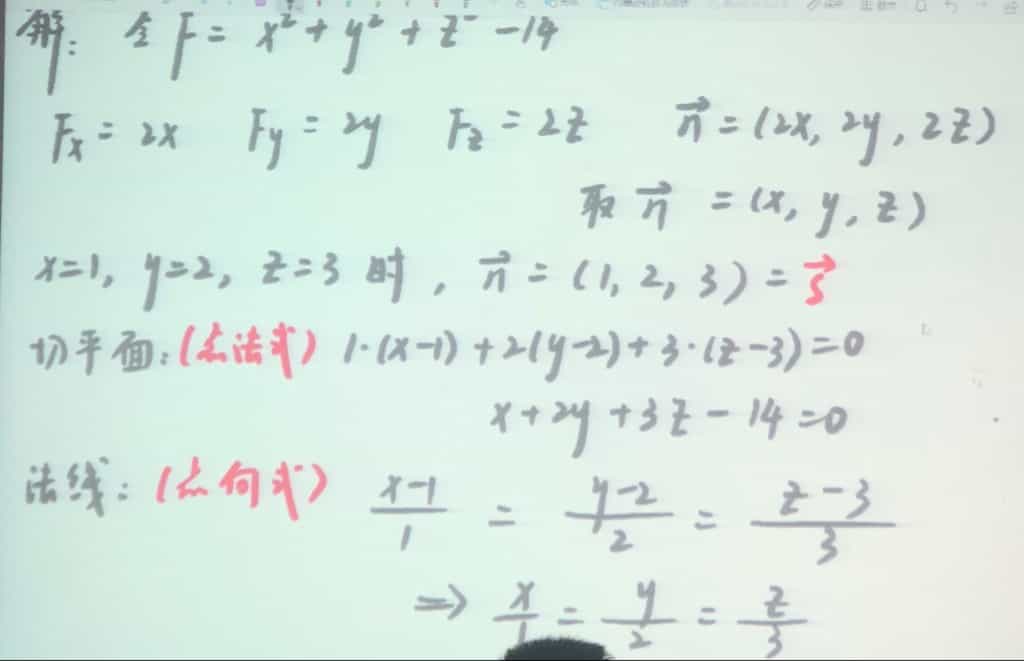 解: 令 F = x² + y² + z² - 14
Fx = 2x Fy = 2y Fz = 2z n⃗ = (2x, 2y, 2z)
取 n⃗ = (x, y, z)
x=1, y=2, z=3 时, n⃗ = (1, 2, 3) = s⃗
切平面: (点法式) 1·(x-1) + 2(y-2) + 3·(z-3) = 0
x + 2y + 3z - 14 = 0
法线: (点向式) (x-1)/1 = (y-2)/2 = (z-3)/3
⇒ x/1 = y/2 = z/3